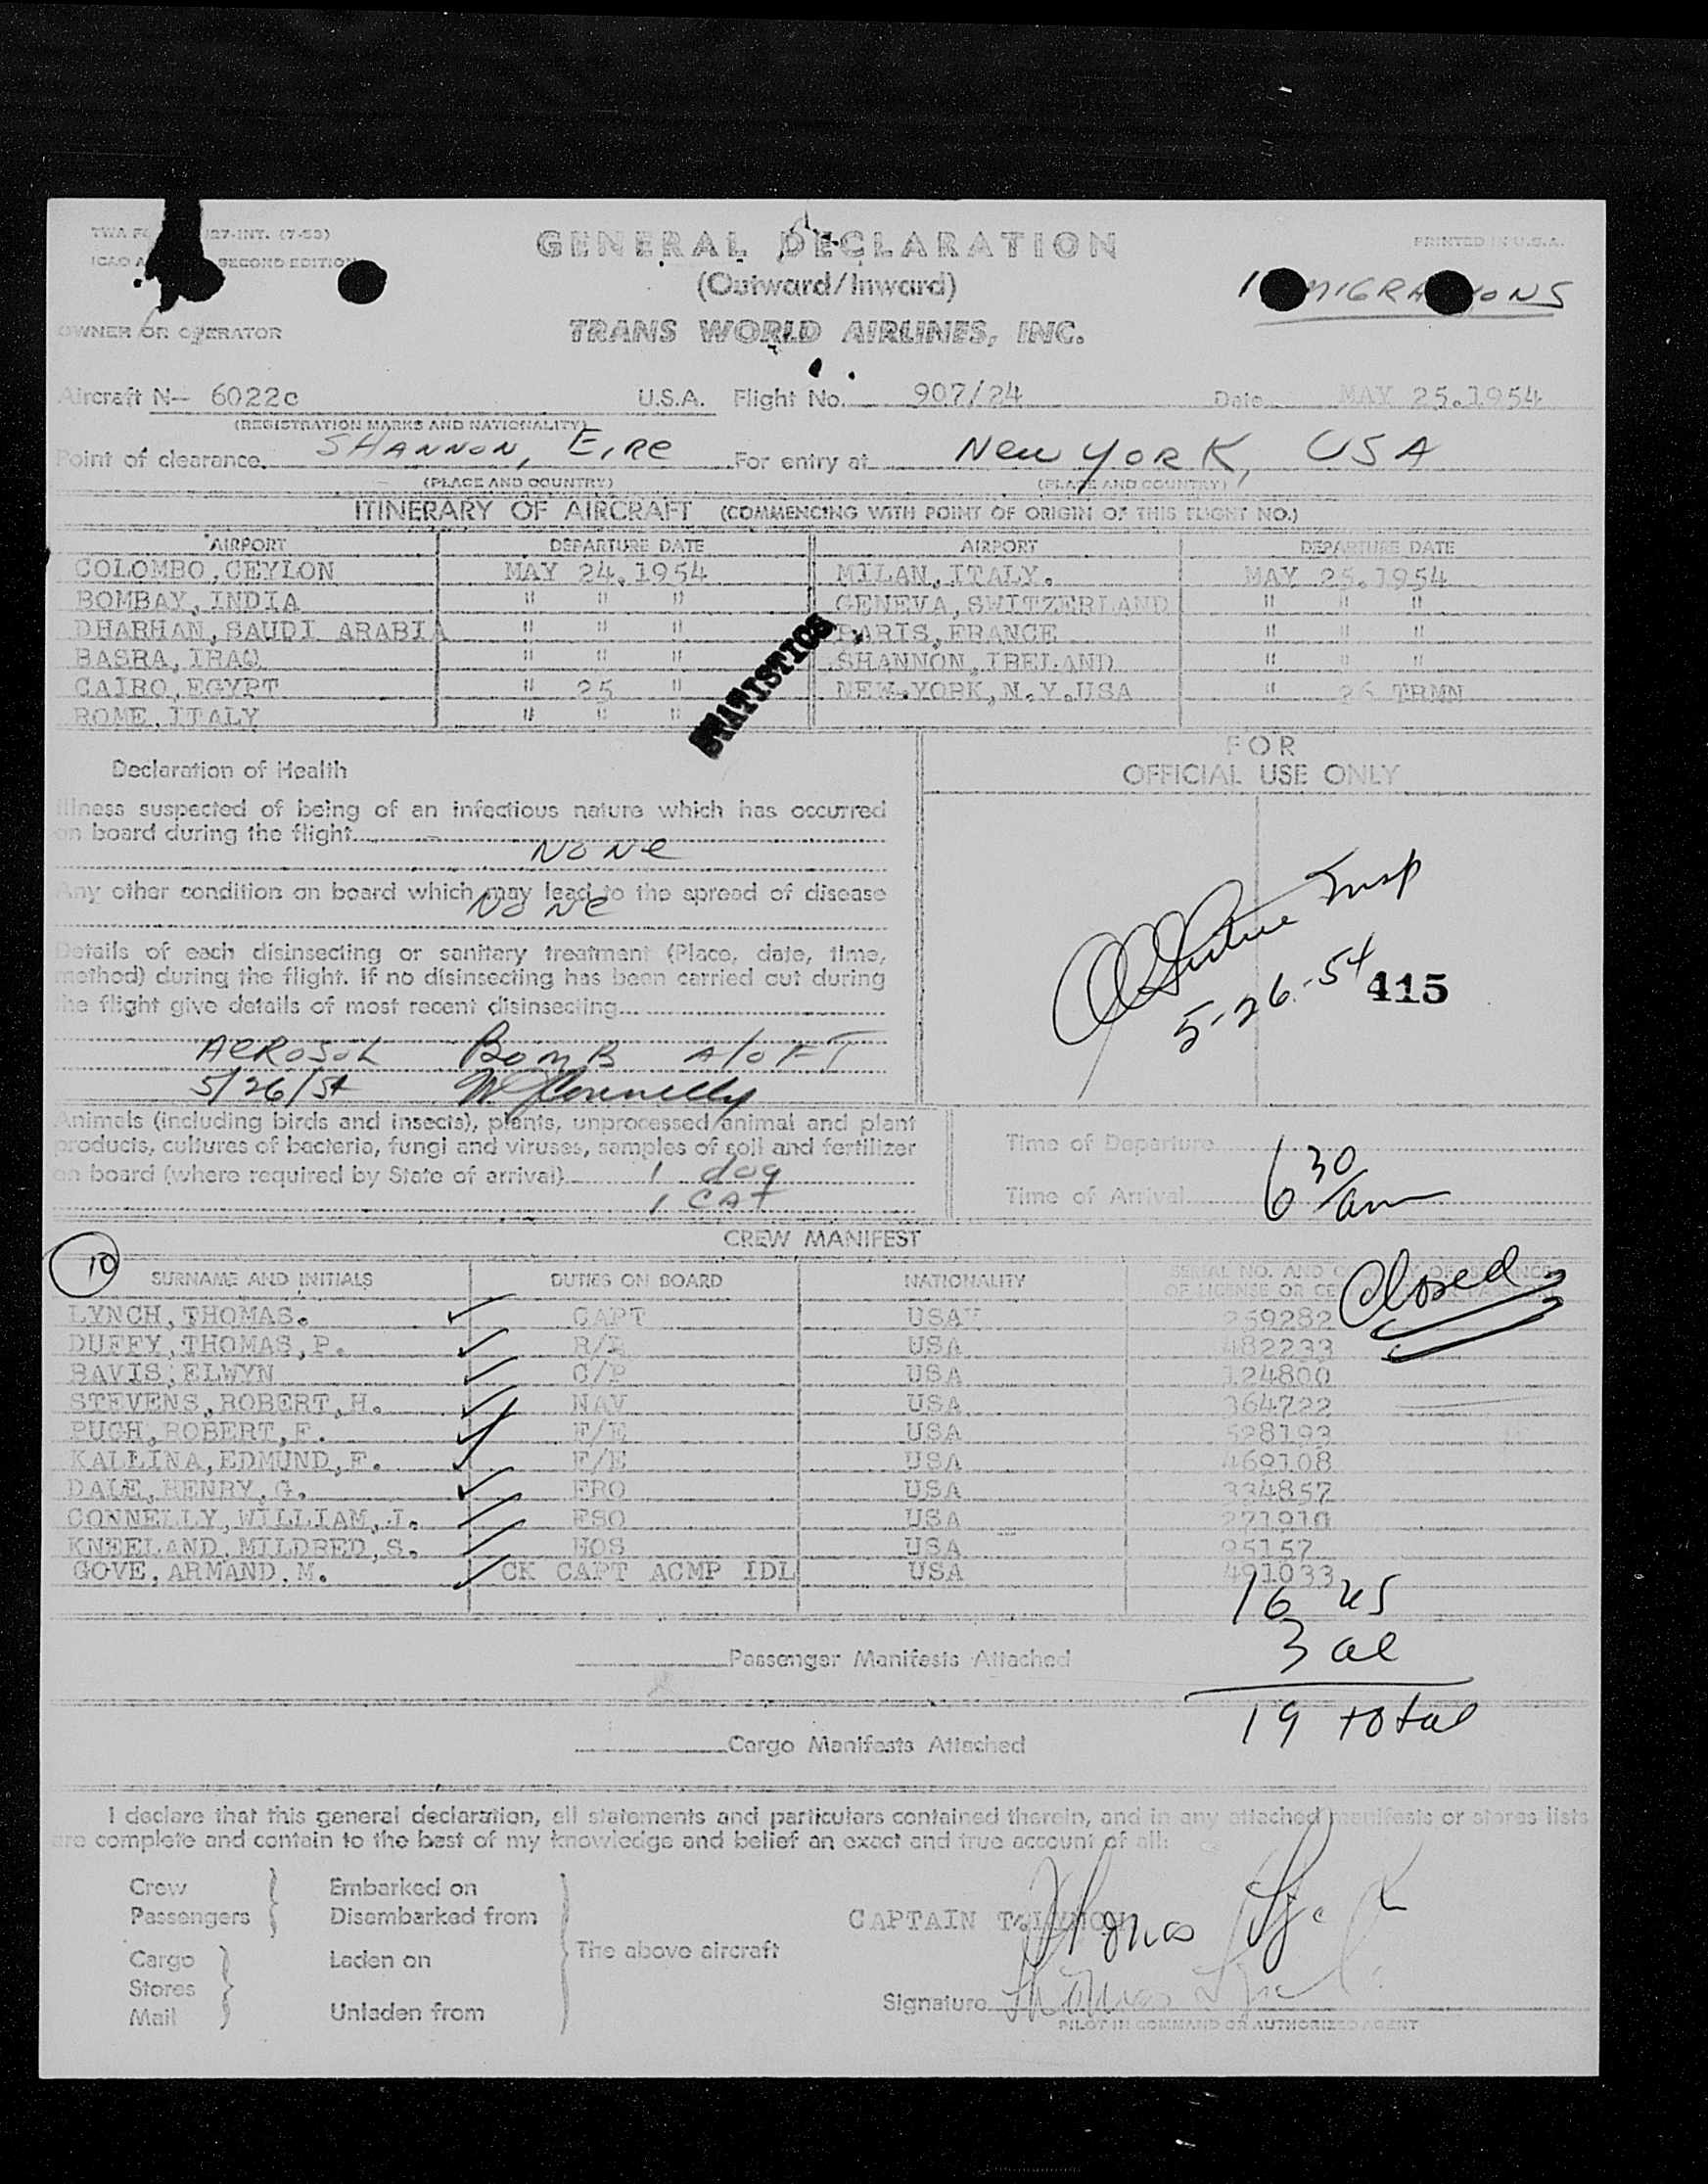 TWA 27-INT. (7-53)
GENERAL DECLARATION
PRINTED IN U.S.A.
ICAO SECOND EDITION
(Outward/Inward)
OWNER OR OPERATOR
TRANS WORLD AIRLINES, INC.
Aircraft N- 6022c U.S.A. Flight No. 907/24 Date MAY 25.1954
(REGISTRATION MARKS AND NATIONALITY)
Point of clearance. SHANNON, EIRE For entry at New YORK, USA
(PLACE AND COUNTRY) (PLACE AND COUNTRY)
ITINERARY OF AIRCRAFT (COMMENCING WITH POINT OF ORIGIN OF THIS FLIGHT NO.)
AIRPORT DEPARTURE DATE AIRPORT DEPARTURE DATE
COLOMBO,CEYLON MAY 24.1954 MILAN,ITALY. MAY 25.1954
BOMBAY,INDIA " " " GENEVA,SWITZERLAND " " "
DHARHAN,SAUDI ARABIA " " " PARIS,FRANCE " " "
BASRA,IRAQ " " " SHANNON,IRELAND " " "
CAIRO,EGYPT " 25 " NEW.YORK,N.Y.USA " 26 TRMN
ROME,ITALY " " "
STATISTICS
Declaration of Health
FOR
OFFICIAL USE ONLY
Illness suspected of being of an infectious nature which has occurred
on board during the flight
NONE
Any other condition on board which may lead to the spread of disease
NONE
Details of each disinsecting or sanitary treatment (Place, date, time,
method) during the flight. If no disinsecting has been carried out during
the flight give details of most recent disinsecting
AEROSOL BOMB ALOFT
5/26/54 W J Connelly
Insp
5-26-54
415
Animals (including birds and insects), plants, unprocessed animal and plant
products, cultures of bacteria, fungi and viruses, samples of soil and fertilizer
on board (where required by State of arrival) 1 dog
1 CAT
Time of Departure
Time of Arrival 6 30/am
CREW MANIFEST
10
SURNAME AND INITIALS DUTIES ON BOARD NATIONALITY SERIAL NO. AND
OF LICENSE OR
Closed
LYNCH,THOMAS. CAPT USA 259282
DUFFY,THOMAS,P. USA 482233
BAVIS,ELWYN C/P USA 124800
STEVENS,ROBERT,H. NAV USA 364722
PUGH,ROBERT,F. F/E USA 528193
KALLINA,EDMUND,F. F/E USA 469108
DALE,HENRY,G. FRO USA 334857
CONNELLY,WILLIAM,J. FSO USA
KNEELAND,MILDRED,S. HOS USA 95157
GOVE,ARMAND,M. CK CAPT ACMP IDL USA 491033
16 us
3 al
19 total
Passenger Manifests Attached
Cargo Manifests Attached
I declare that this general declaration, all statements and particulars contained therein, and in any attached manifests or stores lists
are complete and contain to the best of my knowledge and belief an exact and true account of all:
Crew
Passengers
Embarked on
Disembarked from
Cargo
Stores
Mail
Laden on
Unladen from
The above aircraft
CAPTAIN T.LYNCH
Thomas Lynch
Signature Thomas Lynch
PILOT IN COMMAND OR AUTHORIZED AGENT